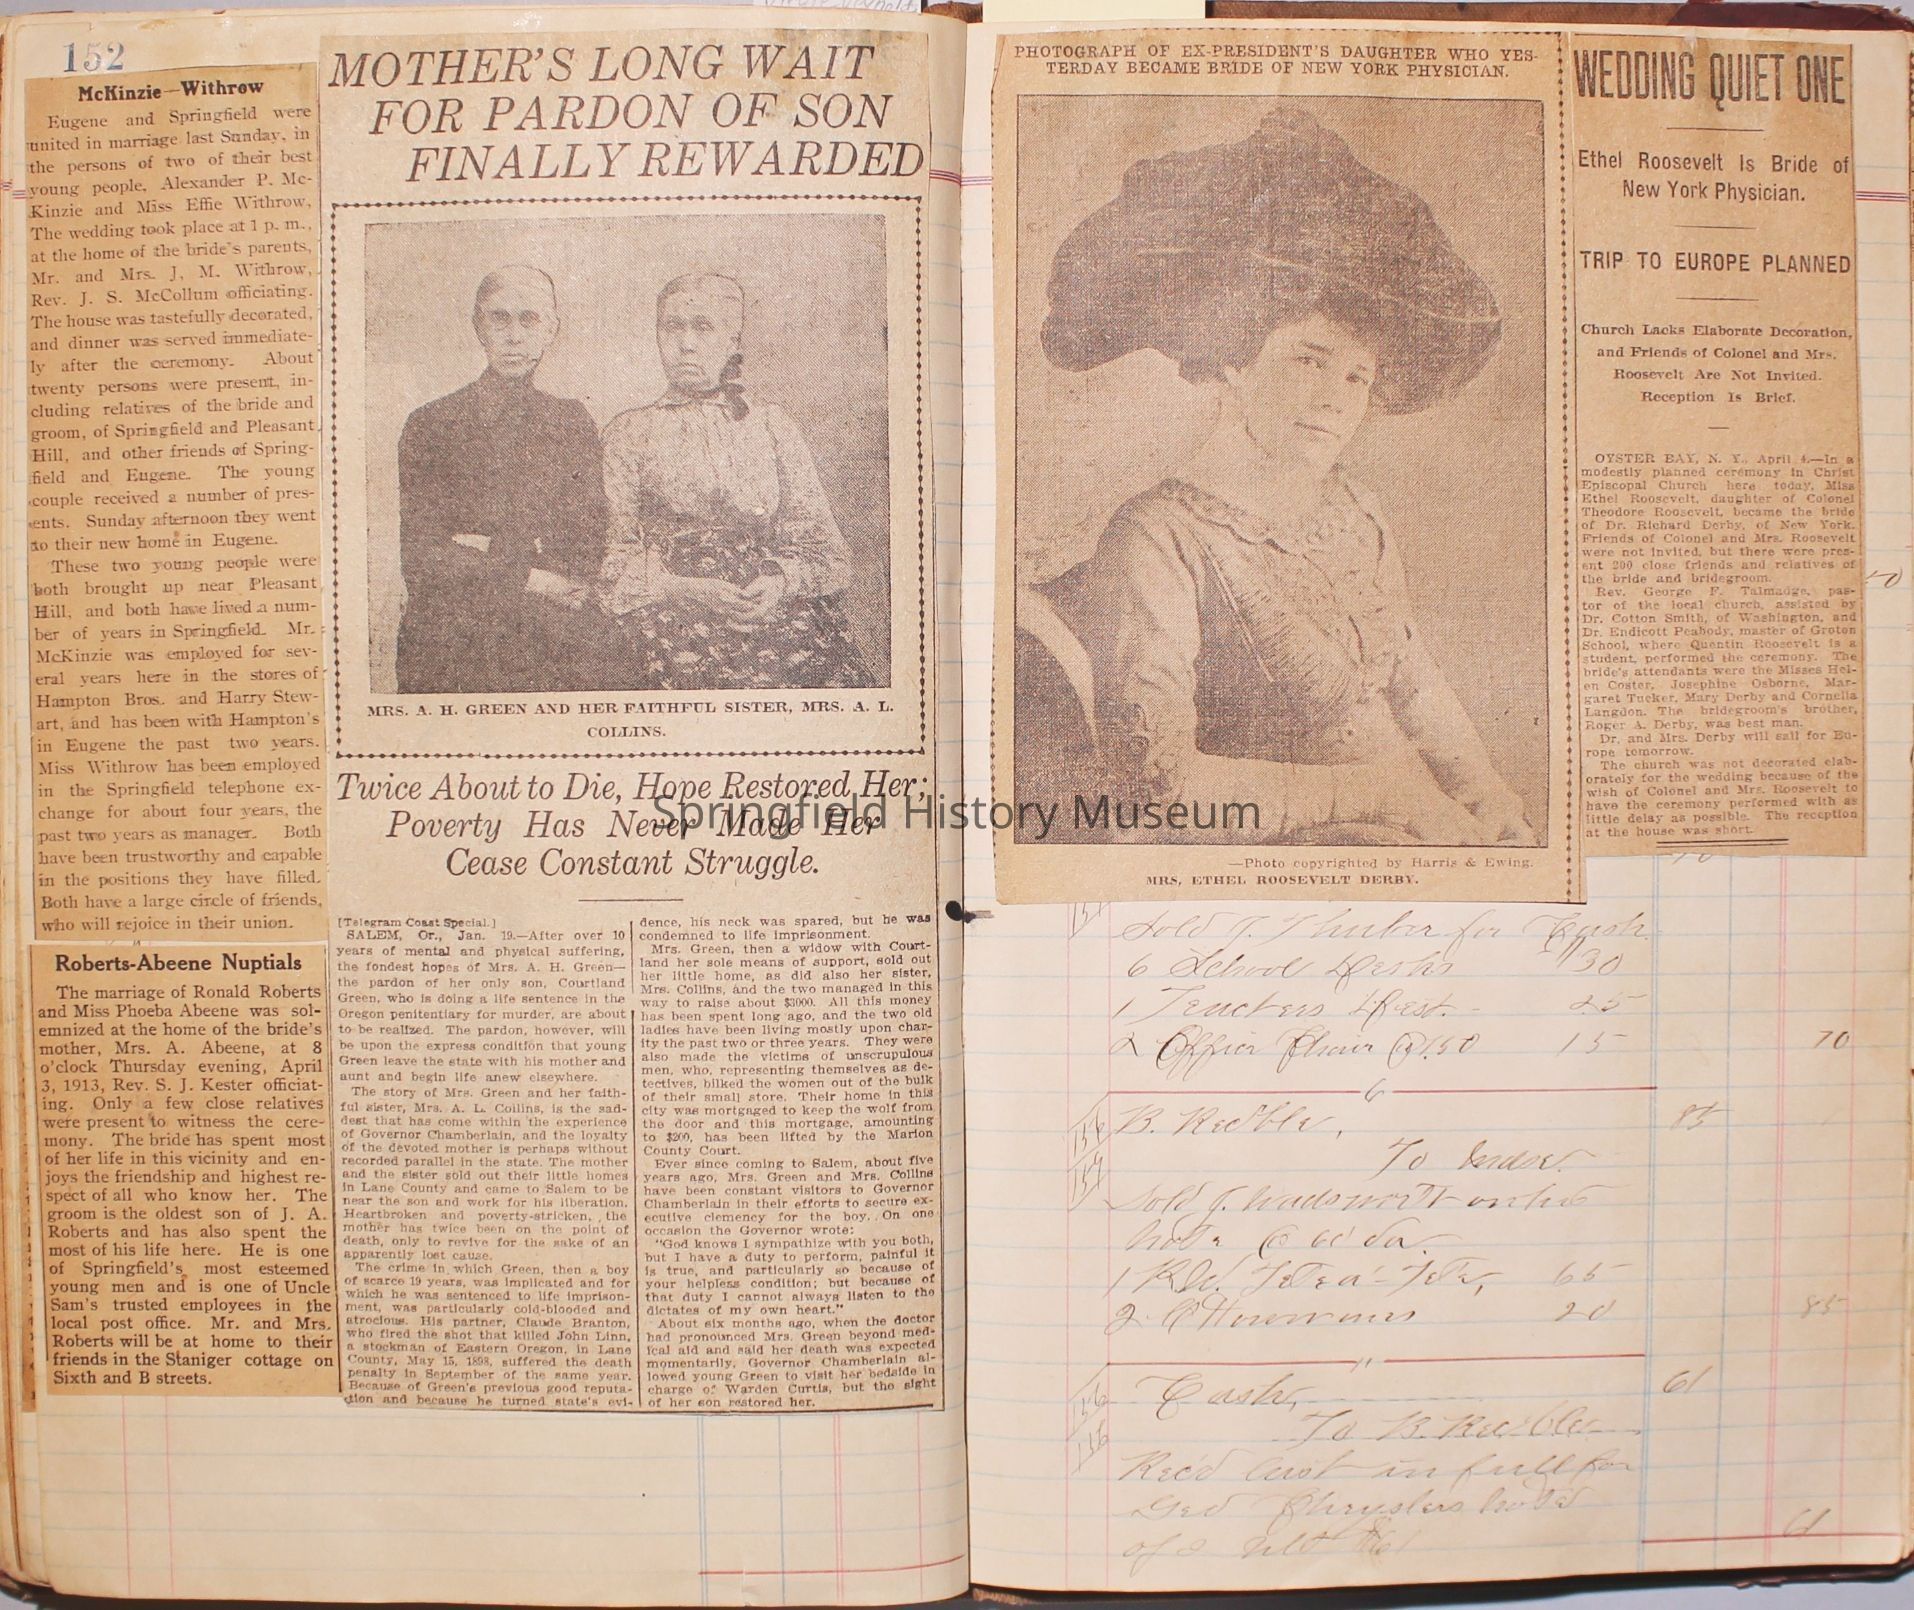 152
McKinzie—Withrow
Eugene and Springfield were
united in marriage last Sunday, in
the persons of two of their best
young people, Alexander P. Mc-
Kinzie and Miss Effie Withrow,
The wedding took place at 1 p. m.,
at the home of the bride's parents,
Mr. and Mrs. J, M. Withrow,
Rev. J. S. McCollum officiating.
The house was tastefully decorated,
and dinner was served immediate-
ly after the ceremony. About
twenty persons were present, in-
cluding relatives of the bride and
groom, of Springfield and Pleasant
Hill, and other friends of Spring-
field and Eugene. The young
couple received a number of pres-
ents. Sunday afternoon they went
to their new home in Eugene.
These two young people were
both brought up near Pleasant
Hill, and both have lived a num-
ber of years in Springfield. Mr.
McKinzie was employed for sev-
eral years here in the stores of
Hampton Bros. and Harry Stew-
art, and has been with Hampton's
in Eugene the past two years.
Miss Withrow has been employed
in the Springfield telephone ex-
change for about four years, the
past two years as manager. Both
have been trustworthy and capable
in the positions they have filled.
Both have a large circle of friends,
who will rejoice in their union.
Roberts-Abeene Nuptials
The marriage of Ronald Roberts
and Miss Phoeba Abeene was sol-
emnized at the home of the bride's
mother, Mrs. A. Abeene, at 8
o'clock Thursday evening, April
3, 1913, Rev. S. J. Kester officiat-
ing. Only a few close relatives
were present to witness the cere-
mony. The bride has spent most
of her life in this vicinity and en-
joys the friendship and highest re-
spect of all who know her. The
groom is the oldest son of J. A.
Roberts and has also spent the
most of his life here. He is one
of Springfield's most esteemed
young men and is one of Uncle
Sam's trusted employees in the
local post office. Mr. and Mrs.
Roberts will be at home to their
friends in the Staniger cottage on
Sixth and B streets.
MOTHER'S LONG WAIT
FOR PARDON OF SON
FINALLY REWARDED
MRS. A. H. GREEN AND HER FAITHFUL SISTER, MRS. A. L.
COLLINS.
Twice About to Die, Hope Restored Her;
Poverty Has Never Made Her
Cease Constant Struggle.
[Telegram Coast Special.]
SALEM, Or., Jan. 19.—After over 10
years of mental and physical suffering,
the fondest hopes of Mrs. A. H. Green—
the pardon of her only son, Courtland
Green, who is doing a life sentence in the
Oregon penitentiary for murder, are about
to be realized. The pardon, however, will
be upon the express condition that young
Green leave the state with his mother and
aunt and begin life anew elsewhere.
The story of Mrs. Green and her faith-
ful sister, Mrs. A. L. Collins, is the sad-
dest that has come within the experience
of Governor Chamberlain, and the loyalty
of the devoted mother is perhaps without
recorded parallel in the state. The mother
and the sister sold out their little homes
in Lane County and came to Salem to be
near the son and work for his liberation.
Heartbroken and poverty-stricken, the
mother has twice been on the point of
death, only to revive for the sake of an
apparently lost cause.
The crime in which Green, then a boy
of scarce 19 years, was implicated and for
which he was sentenced to life imprison-
ment, was particularly cold-blooded and
atrocious. His partner, Claude Branton,
who fired the shot that killed John Linn,
a stockman of Eastern Oregon, in Lane
County, May 15, 1898, suffered the death
penalty in September of the same year.
Because of Green's previous good reputa-
tion and because he turned state's evi-
dence, his neck was spared, but he was
condemned to life imprisonment.
Mrs. Green, then a widow with Court-
land her sole means of support, sold out
her little home, as did also her sister,
Mrs. Collins, and the two managed in this
way to raise about $3000. All this money
has been spent long ago, and the two old
ladies have been living mostly upon char-
ity the past two or three years. They were
also made the victims of unscrupulous
men, who, representing themselves as de-
tectives, bilked the women out of the bulk
of their small store. Their home in this
city was mortgaged to keep the wolf from
the door and this mortgage, amounting
to $200, has been lifted by the Marion
County Court.
Ever since coming to Salem, about five
years ago, Mrs. Green and Mrs. Collins
have been constant visitors to Governor
Chamberlain in their efforts to secure ex-
ecutive clemency for the boy. On one
occasion the Governor wrote:
"God knows I sympathize with you both,
but I have a duty to perform, painful it
is true, and particularly so because of
your helpless condition; but because of
that duty I cannot always listen to the
dictates of my own heart."
About six months ago, when the doctor
had pronounced Mrs. Green beyond med-
ical aid and said her death was expected
momentarily, Governor Chamberlain al-
lowed young Green to visit her bedside in
charge of Warden Curtis, but the sight
of her son restored her.
PHOTOGRAPH OF EX-PRESIDENT'S DAUGHTER WHO YES-
TERDAY BECAME BRIDE OF NEW YORK PHYSICIAN.
—Photo copyrighted by Harris & Ewing.
MRS. ETHEL ROOSEVELT DERBY.
WEDDING QUIET ONE
Ethel Roosevelt Is Bride of
New York Physician.
TRIP TO EUROPE PLANNED
Church Lacks Elaborate Decoration,
and Friends of Colonel and Mrs.
Roosevelt Are Not Invited.
Reception Is Brief.
OYSTER BAY, N. Y., April 4.—In a
modestly planned ceremony in Christ
Episcopal Church here today, Miss
Ethel Roosevelt, daughter of Colonel
Theodore Roosevelt, became the bride
of Dr. Richard Derby, of New York.
Friends of Colonel and Mrs. Roosevelt
were not invited, but there were pres-
ent 200 close friends and relatives of
the bride and bridegroom.
Rev. George F. Talmadge, pas-
tor of the local church, assisted by
Dr. Cotton Smith, of Washington, and
Dr. Endicott Peabody, master of Groton
School, where Quentin Roosevelt is a
student, performed the ceremony. The
bride's attendants were the Misses Hel-
en Coster, Josephine Osborne, Mar-
garet Tucker, Mary Derby and Cornelia
Langdon. The bridegroom's brother,
Roger A. Derby, was best man.
Dr. and Mrs. Derby will sail for Eu-
rope tomorrow.
The church was not decorated elab-
orately for the wedding because of the
wish of Colonel and Mrs. Roosevelt to
have the ceremony performed with as
little delay as possible. The reception
at the house was short.
Springfield History Museum
Sold J. Thurber for Cash
6 School Desks 30
1 Teachers Desk 25
2 Office Chair @ 7.50 15 70
6
85
To
Sold J. Wadsworth on his
note @ 60 da.
65
2 20 85
11
Cash, 61
To B.
Rec'd Cash in full for
Geo Chryslers note
of
61